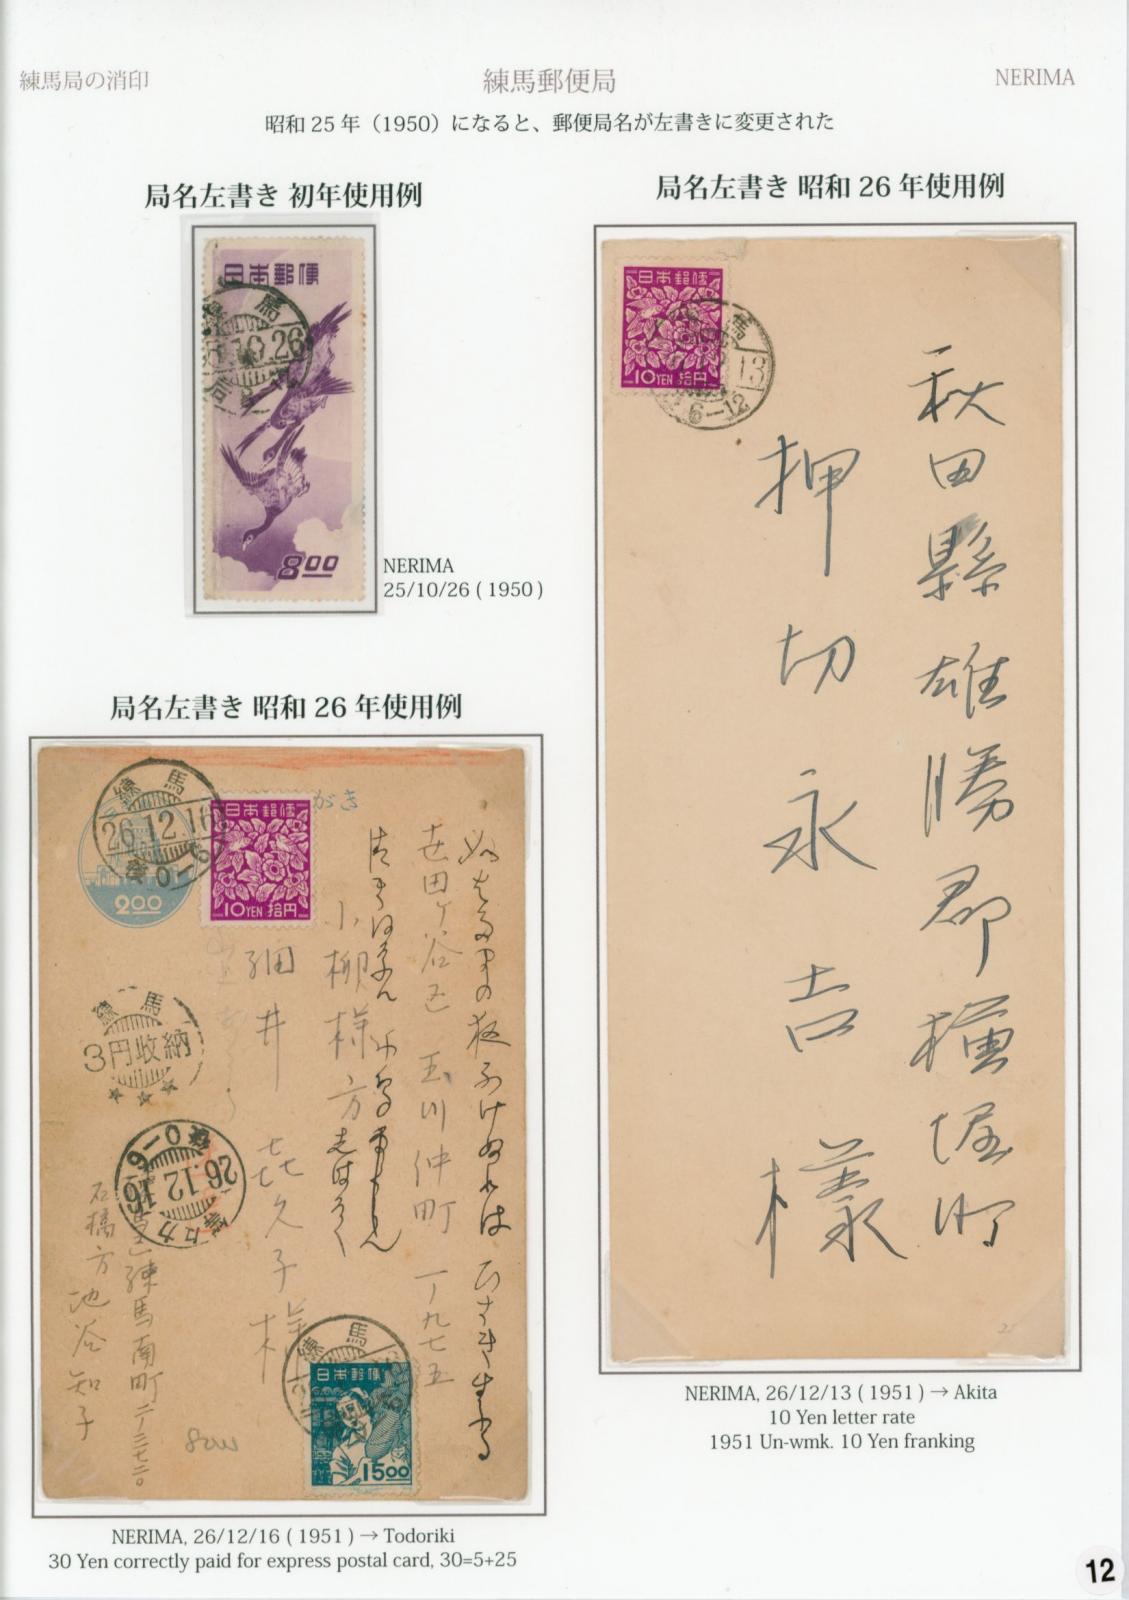 練馬局の消印
練馬郵便局
NERIMA
昭和25年（1950）になると、郵便局名が左書きに変更された
局名左書き 初年使用例
日本郵便
練馬
.10.26
局
8.00
NERIMA
25/10/26 ( 1950 )
局名左書き 昭和 26 年使用例
日本郵便
10YEN 拾円
馬
13
6－12
秋田縣雄勝郡横堀町
押切永吉様
NERIMA, 26/12/13 ( 1951 ) → Akita
10 Yen letter rate
1951 Un-wmk. 10 Yen franking
局名左書き 昭和 26 年使用例
練馬
26.12.16
がき
2.00
日本郵便
10YEN 拾円
世田ヶ谷区 玉川仲町 一ノ九七五
小柳様方
細井 喜久子様
練馬
3円収納
26.12.16
練馬南町二ノ三七二〇
石橋方 池谷知子
練馬
日本郵便
15.00
NERIMA, 26/12/16 ( 1951 ) → Todoriki
30 Yen correctly paid for express postal card, 30=5+25
12